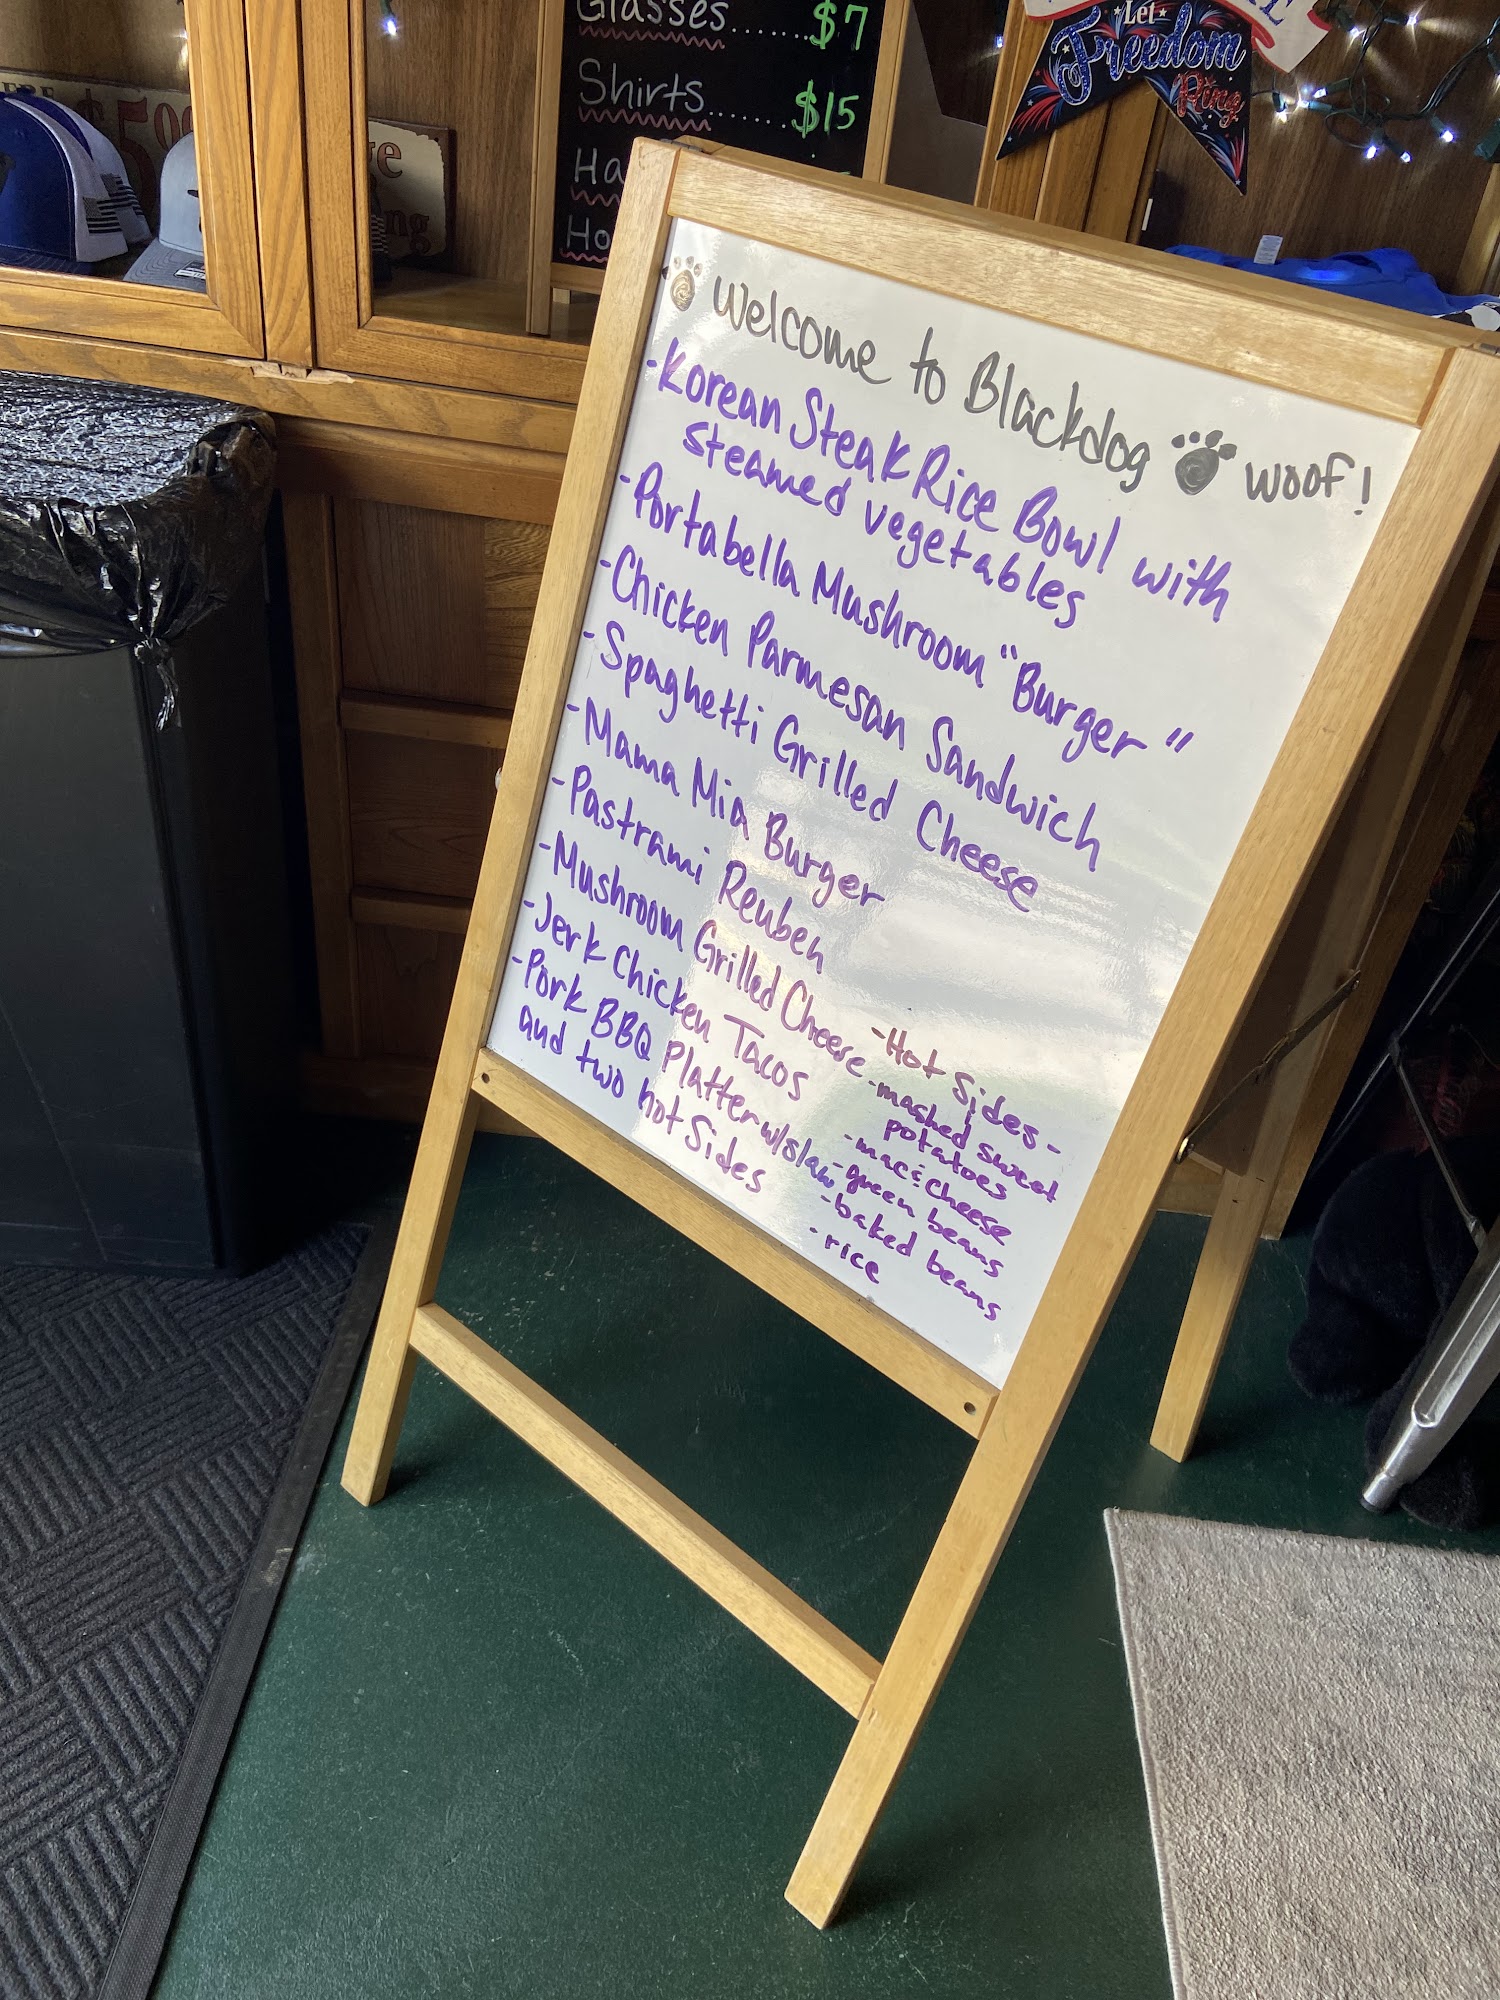 Glasses.......$7
Shirts.......$15
Ha
Ho
Let
Freedom
Ring
Welcome to Blackdog woof!
-Korean Steak Rice Bowl with
steamed vegetables
-Portabella Mushroom "Burger"
-Chicken Parmesan Sandwich
-Spaghetti Grilled Cheese
-Mama Mia Burger
-Pastrami Reuben
-Mushroom Grilled Cheese
-Jerk Chicken Tacos
-Pork BBQ Platter w/slaw
and two hot Sides
-Hot Sides-
-mashed sweet
potatoes
-mac & cheese
-green beans
-baked beans
-rice